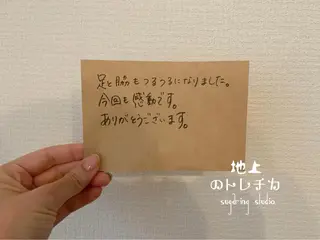 足と脇もつるつるになりました。
今回も感動です。
ありがとうございます。
地上
のトレチカ
sugaring studio